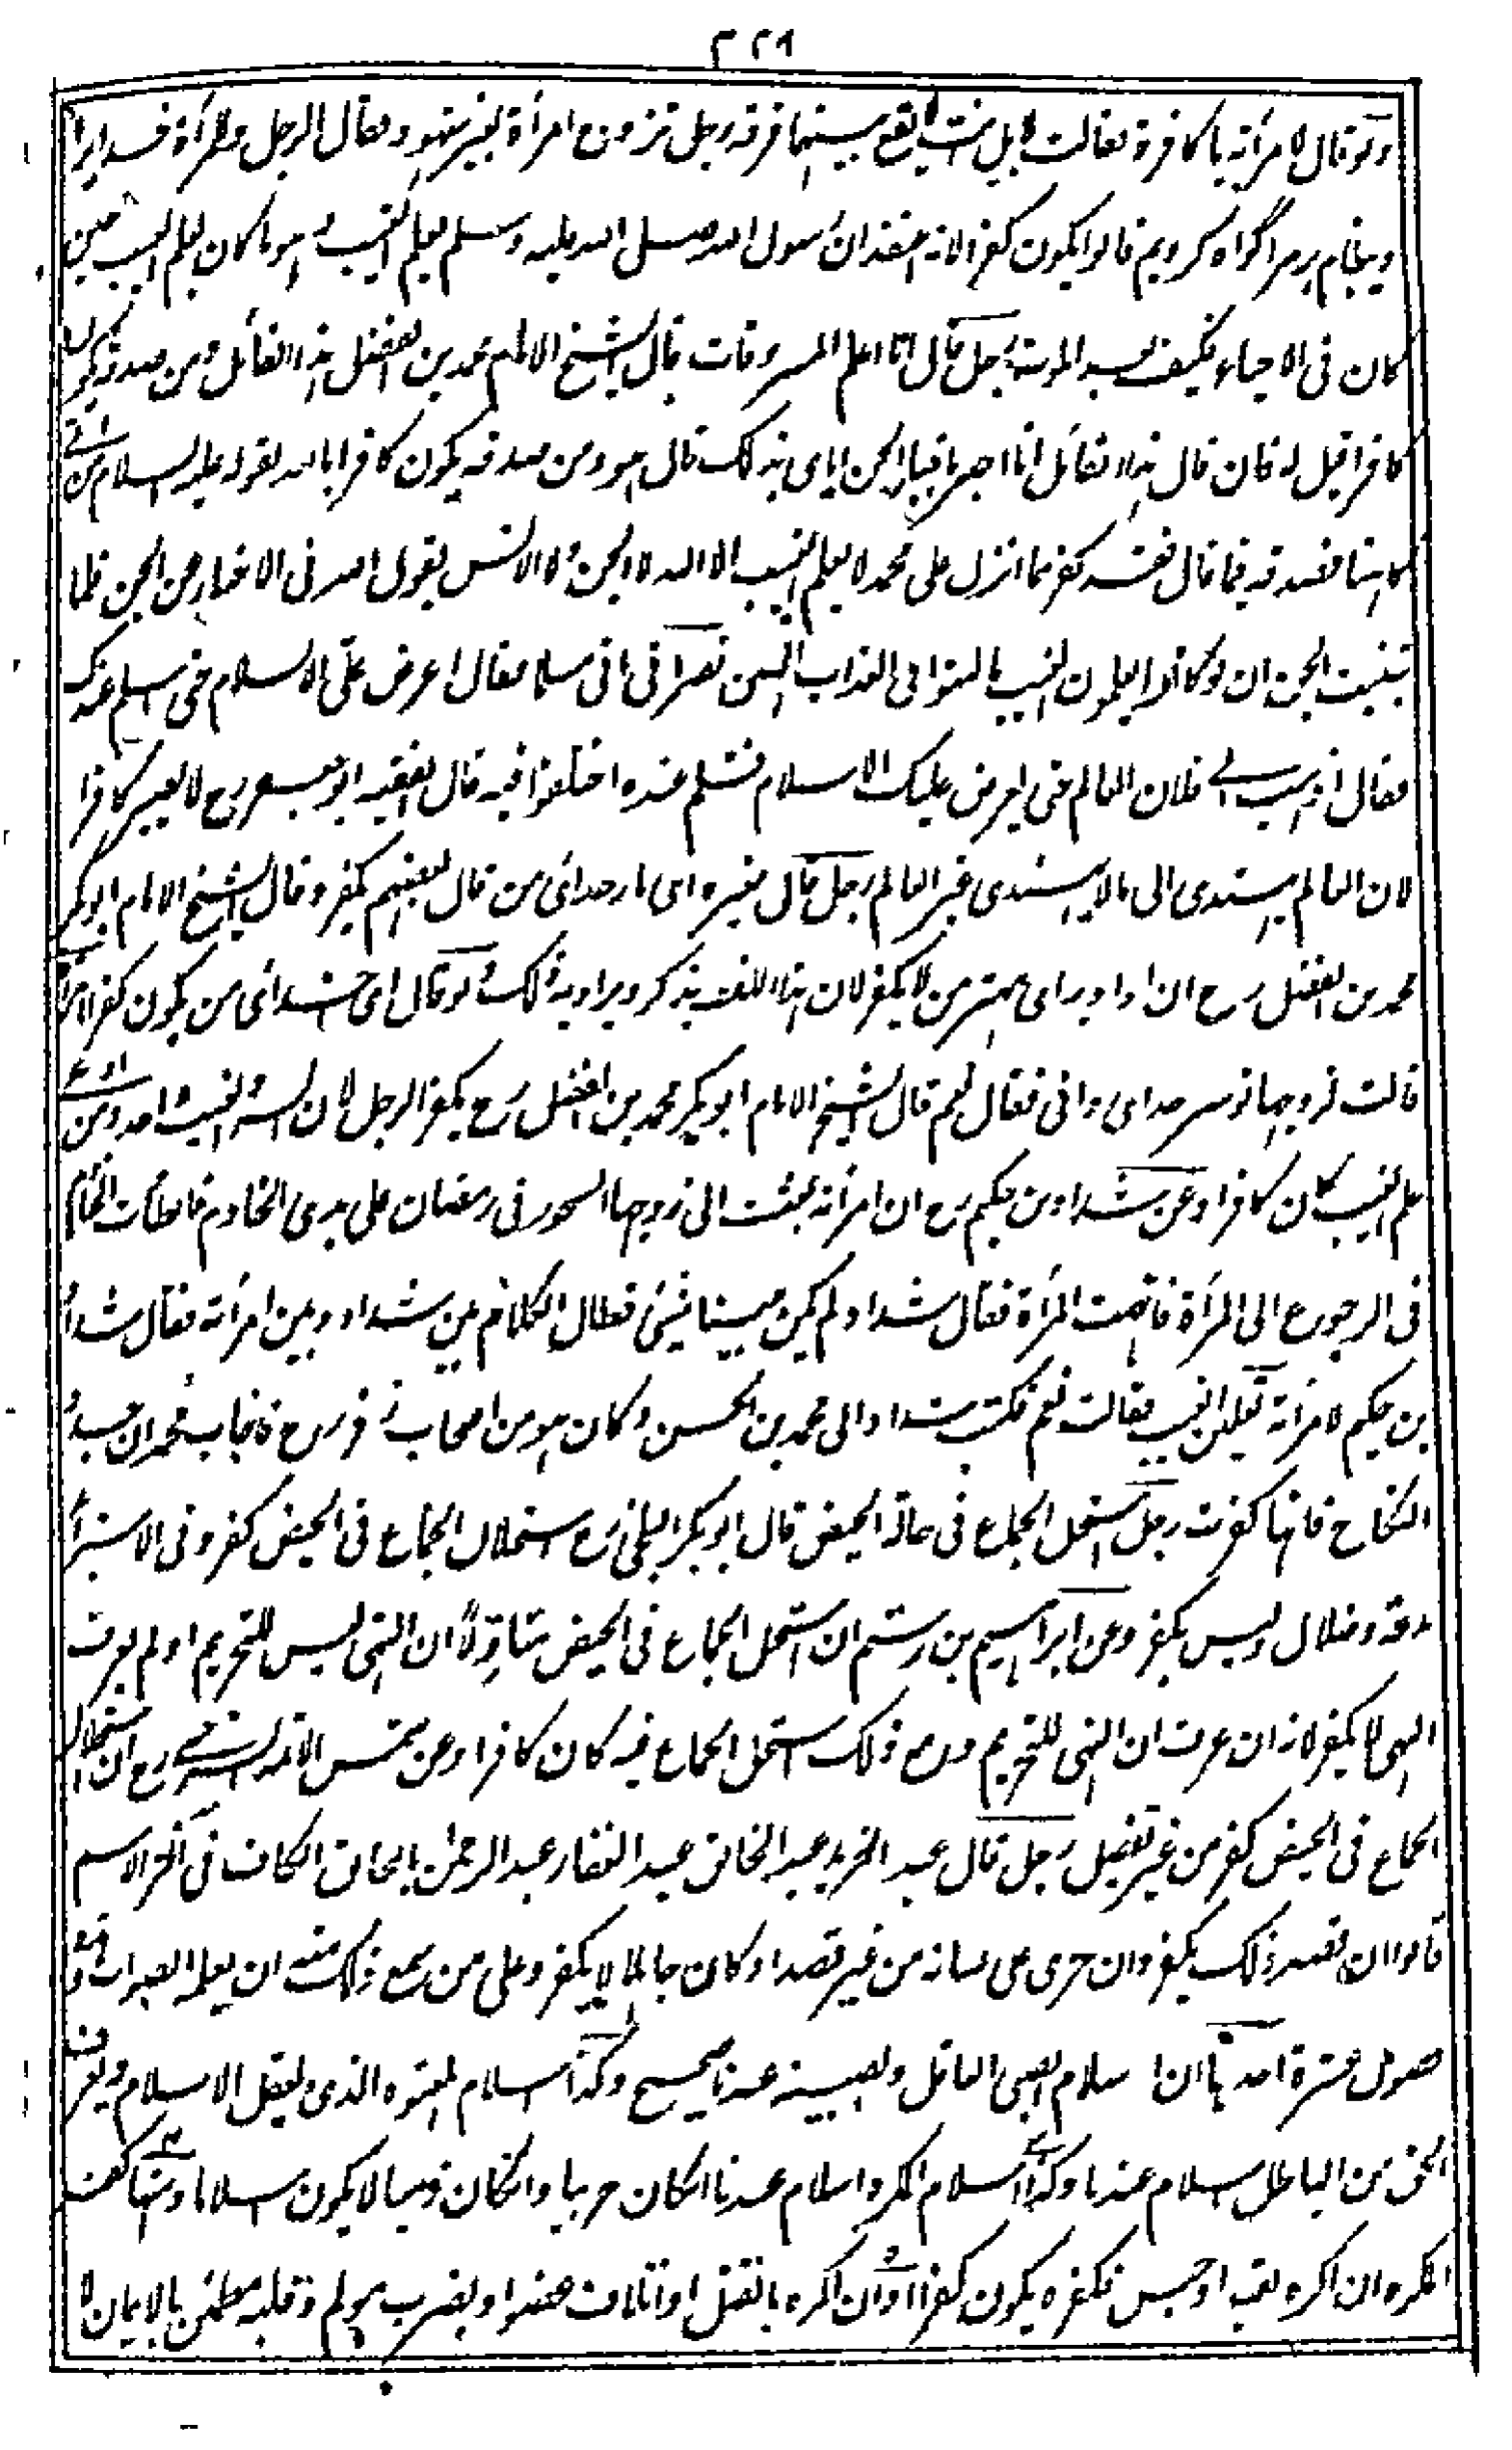 ولو قال لامرأته يا كافرة فقالت لا بل أنت لا يقع بينهما فرقة رجل تزوج امرأة بغير شهود فقال الرجل والمرأة خدايرا
وپيغامبر را گواه كرديم قالوا يكون كفرا لانه اعتقد ان رسول الله صلى الله عليه وسلم يعلم الغيب وهو ما كان يعلم الغيب حين
كان فى الاحياء فكيف بعد الموت رجل قال انا اعلم المسروقات قال الشيخ الامام محمد بن الفضل هذا القائل ومن صدقه يكون
كافرا قيل له فان قال هذا القائل انا اخبر باخبار الجن اياى بذلك قال هو ومن صدقه يكون كافرا بالله لقوله عليه السلام من اتى
كاهنا فصدقه فيما قال فقد كفر بما انزل على محمد لا يعلم الغيب الا الله لا الجن ولا الانس يقول الله فى الاخبار عن الجن فلما
تبينت الجن ان لو كانوا يعلمون الغيب ما لبثوا فى العذاب المهين نصرانى اتى مسلما فقال اعرض على الاسلام حتى اسلم عندك
فقال اذهب الى فلان العالم حتى يعرض عليك الاسلام فتسلم عنده اختلفوا فيه قال الفقيه ابو جعفر رح لا يصير كافرا
لان العالم يهتدى الى ما لا يهتدى غير العالم رجل قال لغيره اى بار خدائ من قال بعضهم يكفر وقال الشيخ الامام ابو بكر
محمد بن الفضل رح ان اراد به اى مهتر من لا يكفر لان هذا اللفظ يذكر ويراد به ذلك ولو قال اى خدائ من يكون كفرا امرأة
قالت لزوجها تو سر خداى دانى فقال نعم قال الشيخ الامام ابو بكر محمد بن الفضل رح يكفر الرجل لان السر والغيب واحد ومن ادعى
علم الغيب كان كافرا وعن شداد بن حكيم رح ان امرأته بعثت الى زوجها السحور فى رمضان على يدى الخادم فابطأت الخادم
فى الرجوع الى المرأة فاتهمت المرأة فقال شداد لم يكن بيننا شئ فطال الكلام بين شداد وبين امرأته فقال شداد
بن حكيم لامرأته تعلمين الغيب فقالت نعم فكتب شداد الى محمد بن الحسن وكان هو من اصحاب زفر رح فاجاب محمد ان جدد
النكاح فانها كفرت رجل استحل الجماع فى حالة الحيض قال ابو بكر البلخى رح استحلال الجماع فى الحيض كفر وفى الاستبراء
بدعة وضلال وليس بكفر وعن ابراهيم بن رستم ان استحل الجماع فى الحيض متاولا ان النهى ليس للتحريم او لم يعرف
النهى لا يكفر لانه ان عرف ان النهى للتحريم ومع ذلك استحل الجماع فيه كان كافرا وعن شمس الائمة السرخسى رح ان استحلال
الجماع فى الحيض كفر من غير تفصيل رجل قال عبد العزيز عبد الخالق عبد الغفار عبد الرحمن بالحاق الكاف فى آخر الاسم
قالوا ان قصد ذلك يكفر وان جرى على لسانه من غير قصد او كان جاهلا لا يكفر وعلى من سمع ذلك منه ان يعلمه الصواب
فصول عشرة احدها ان اسلام الصبى العاقل والصبية عندنا صحيح وكذا اسلام المعتوه الذى يعقل الاسلام ويعرف
الحق من الباطل اسلام عندنا وكذا اسلام المكره اسلام عندنا ان كان حربيا وان كان ذميا لا يكون اسلاما ومنها كفر
المكره ان اكره بقيد او حبس فكفره يكون كفرا وان اكره بالقتل او اتلاف عضو او بضرب مولم وقلبه مطمئن بالايمان لا